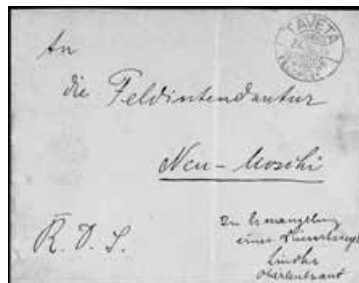 TAVETA
An
die Feldintendantur
Neu-Moschi
R. D. S.
In Ermangelung
eines Dienstsiegels
Lindke
Oberleutnant